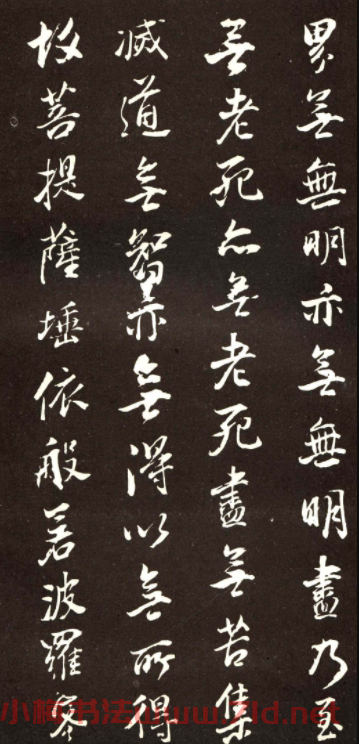 界無無明亦無無明盡乃至
無老死亦無老死盡無苦集
滅道無智亦無得以無所得
故菩提薩埵依般若波羅蜜
书法